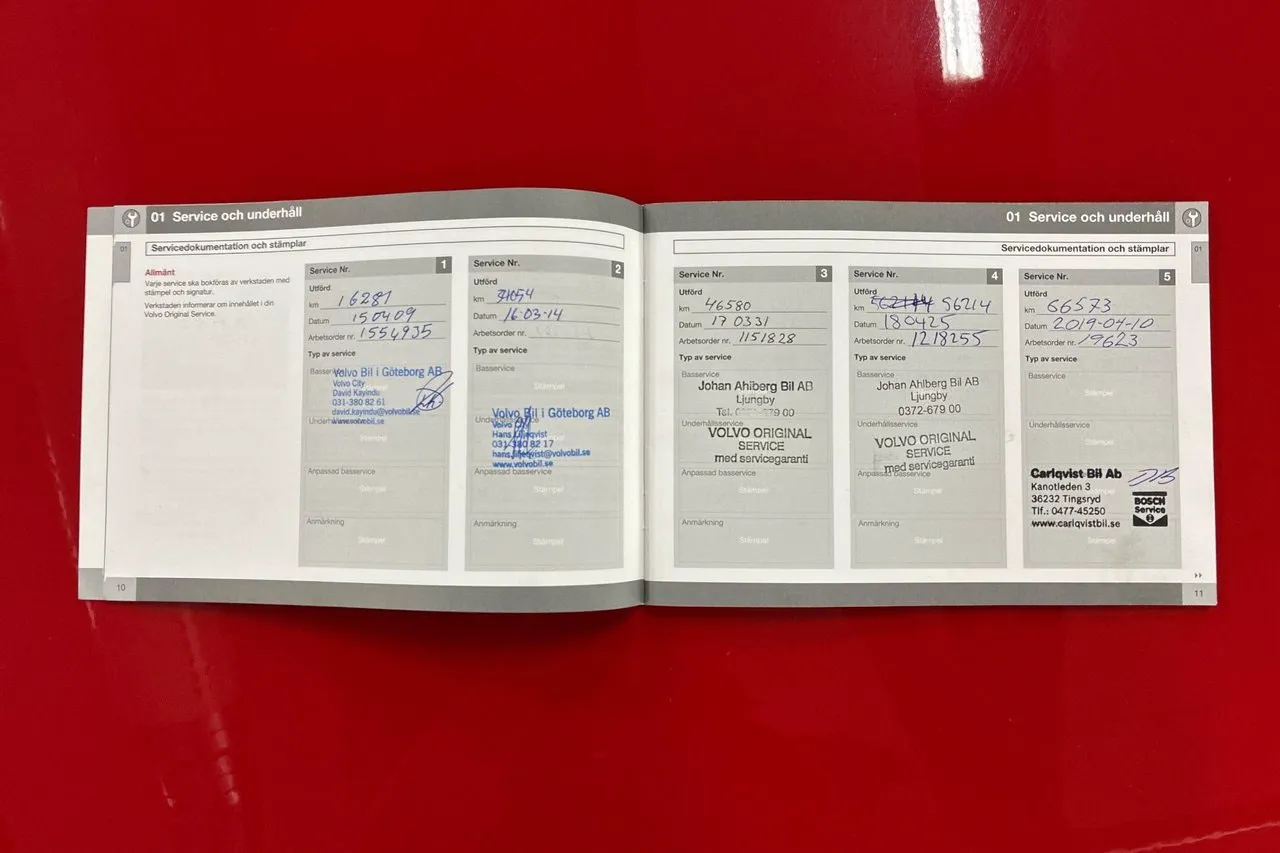 01 Service och underhåll
01
Servicedokumentation och stämplar
Allmänt
Varje service ska bokföras av verkstaden med
stämpel och signatur.
Verkstaden informerar om innehållet i din
Volvo Original Service.
Service Nr. 1
Utförd
km 16281
Datum 150409
Arbetsorder nr. 1554935
Typ av service
Basservice
Volvo Bil i Göteborg AB
Volvo City
David Kayindu
031-380 82 61
david.kayindu@volvobil.se
www.volvobil.se
Stämpel
Anpassad basservice
Stämpel
Anmärkning
Stämpel
Service Nr. 2
Utförd
km
Datum 16-03-14
Arbetsorder nr.
Typ av service
Basservice
Stämpel
Volvo Bil i Göteborg AB
Volvo City
Hans
031-380 82 17
www.volvobil.se
Anpassad basservice
Stämpel
Anmärkning
Stämpel
10
01 Service och underhåll
Servicedokumentation och stämplar
01
Service Nr. 3
Utförd
km 46580
Datum 17 0331
Arbetsorder nr. 1151828
Typ av service
Basservice
Johan Ahlberg Bil AB
Ljungby
Tel. 79 00
Underhållsservice
VOLVO ORIGINAL
SERVICE
med servicegaranti
Anpassad basservice
Stämpel
Anmärkning
Stämpel
Service Nr. 4
Utförd
km 56214
Datum 180425
Arbetsorder nr. 1218255
Typ av service
Basservice
Johan Ahlberg Bil AB
Ljungby
0372-679 00
Underhållsservice
VOLVO ORIGINAL
SERVICE
med servicegaranti
Anpassad basservice
Stämpel
Anmärkning
Stämpel
Service Nr. 5
Utförd
km 66573
Datum 2019-04-10
Arbetsorder nr. 19623
Typ av service
Basservice
Stämpel
Underhållsservice
Stämpel
Carlqvist Bil Ab
Kanotleden 3
36232 Tingsryd
Tlf.: 0477-45250
www.carlqvistbil.se
BOSCH
Service
Stämpel
11